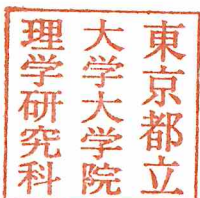 東京都立
大学大学院
理学研究科